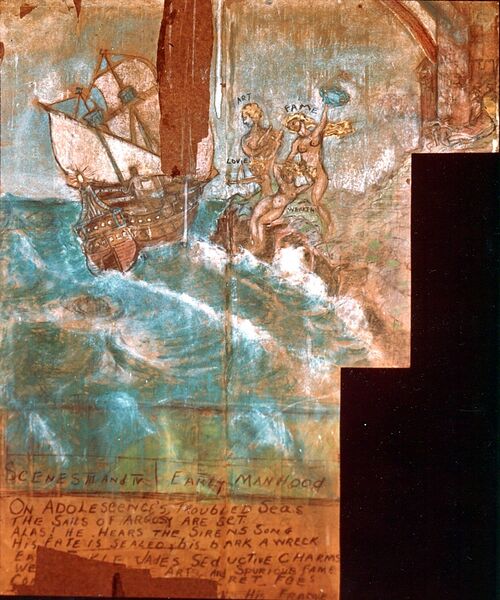 ART
FAME
LOVE
WEALTH
SCENES III and IV | EARLY MANHOOD
ON ADOLESCENCE'S TROUBLED SEAS
THE SAILS OF ARGOSY ARE SET
ALAS, HE HEARS THE SIRENS SONG
HIS FATE IS SEALED, his bARK A WRECK
SEDUCTIVE CHARMS
WE ART, AND SPURIOUS FAME
FOES
HIS